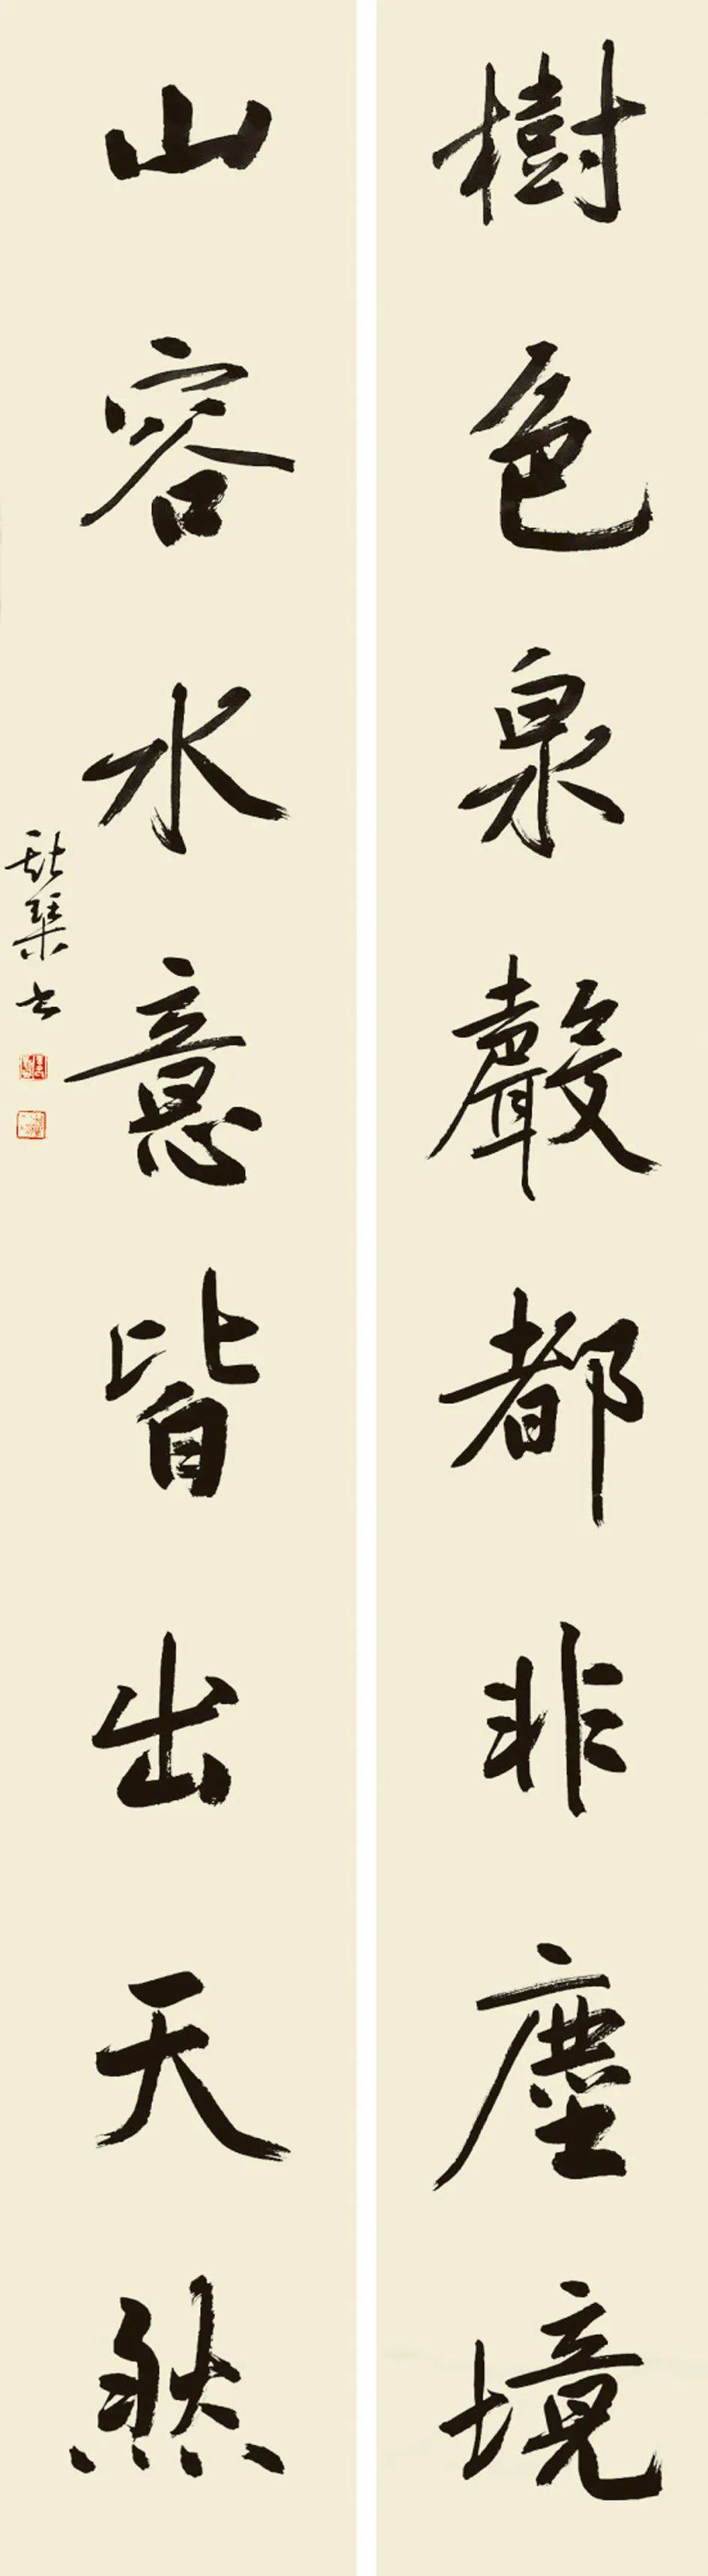 樹色泉聲都非塵境
山容水意皆出天然